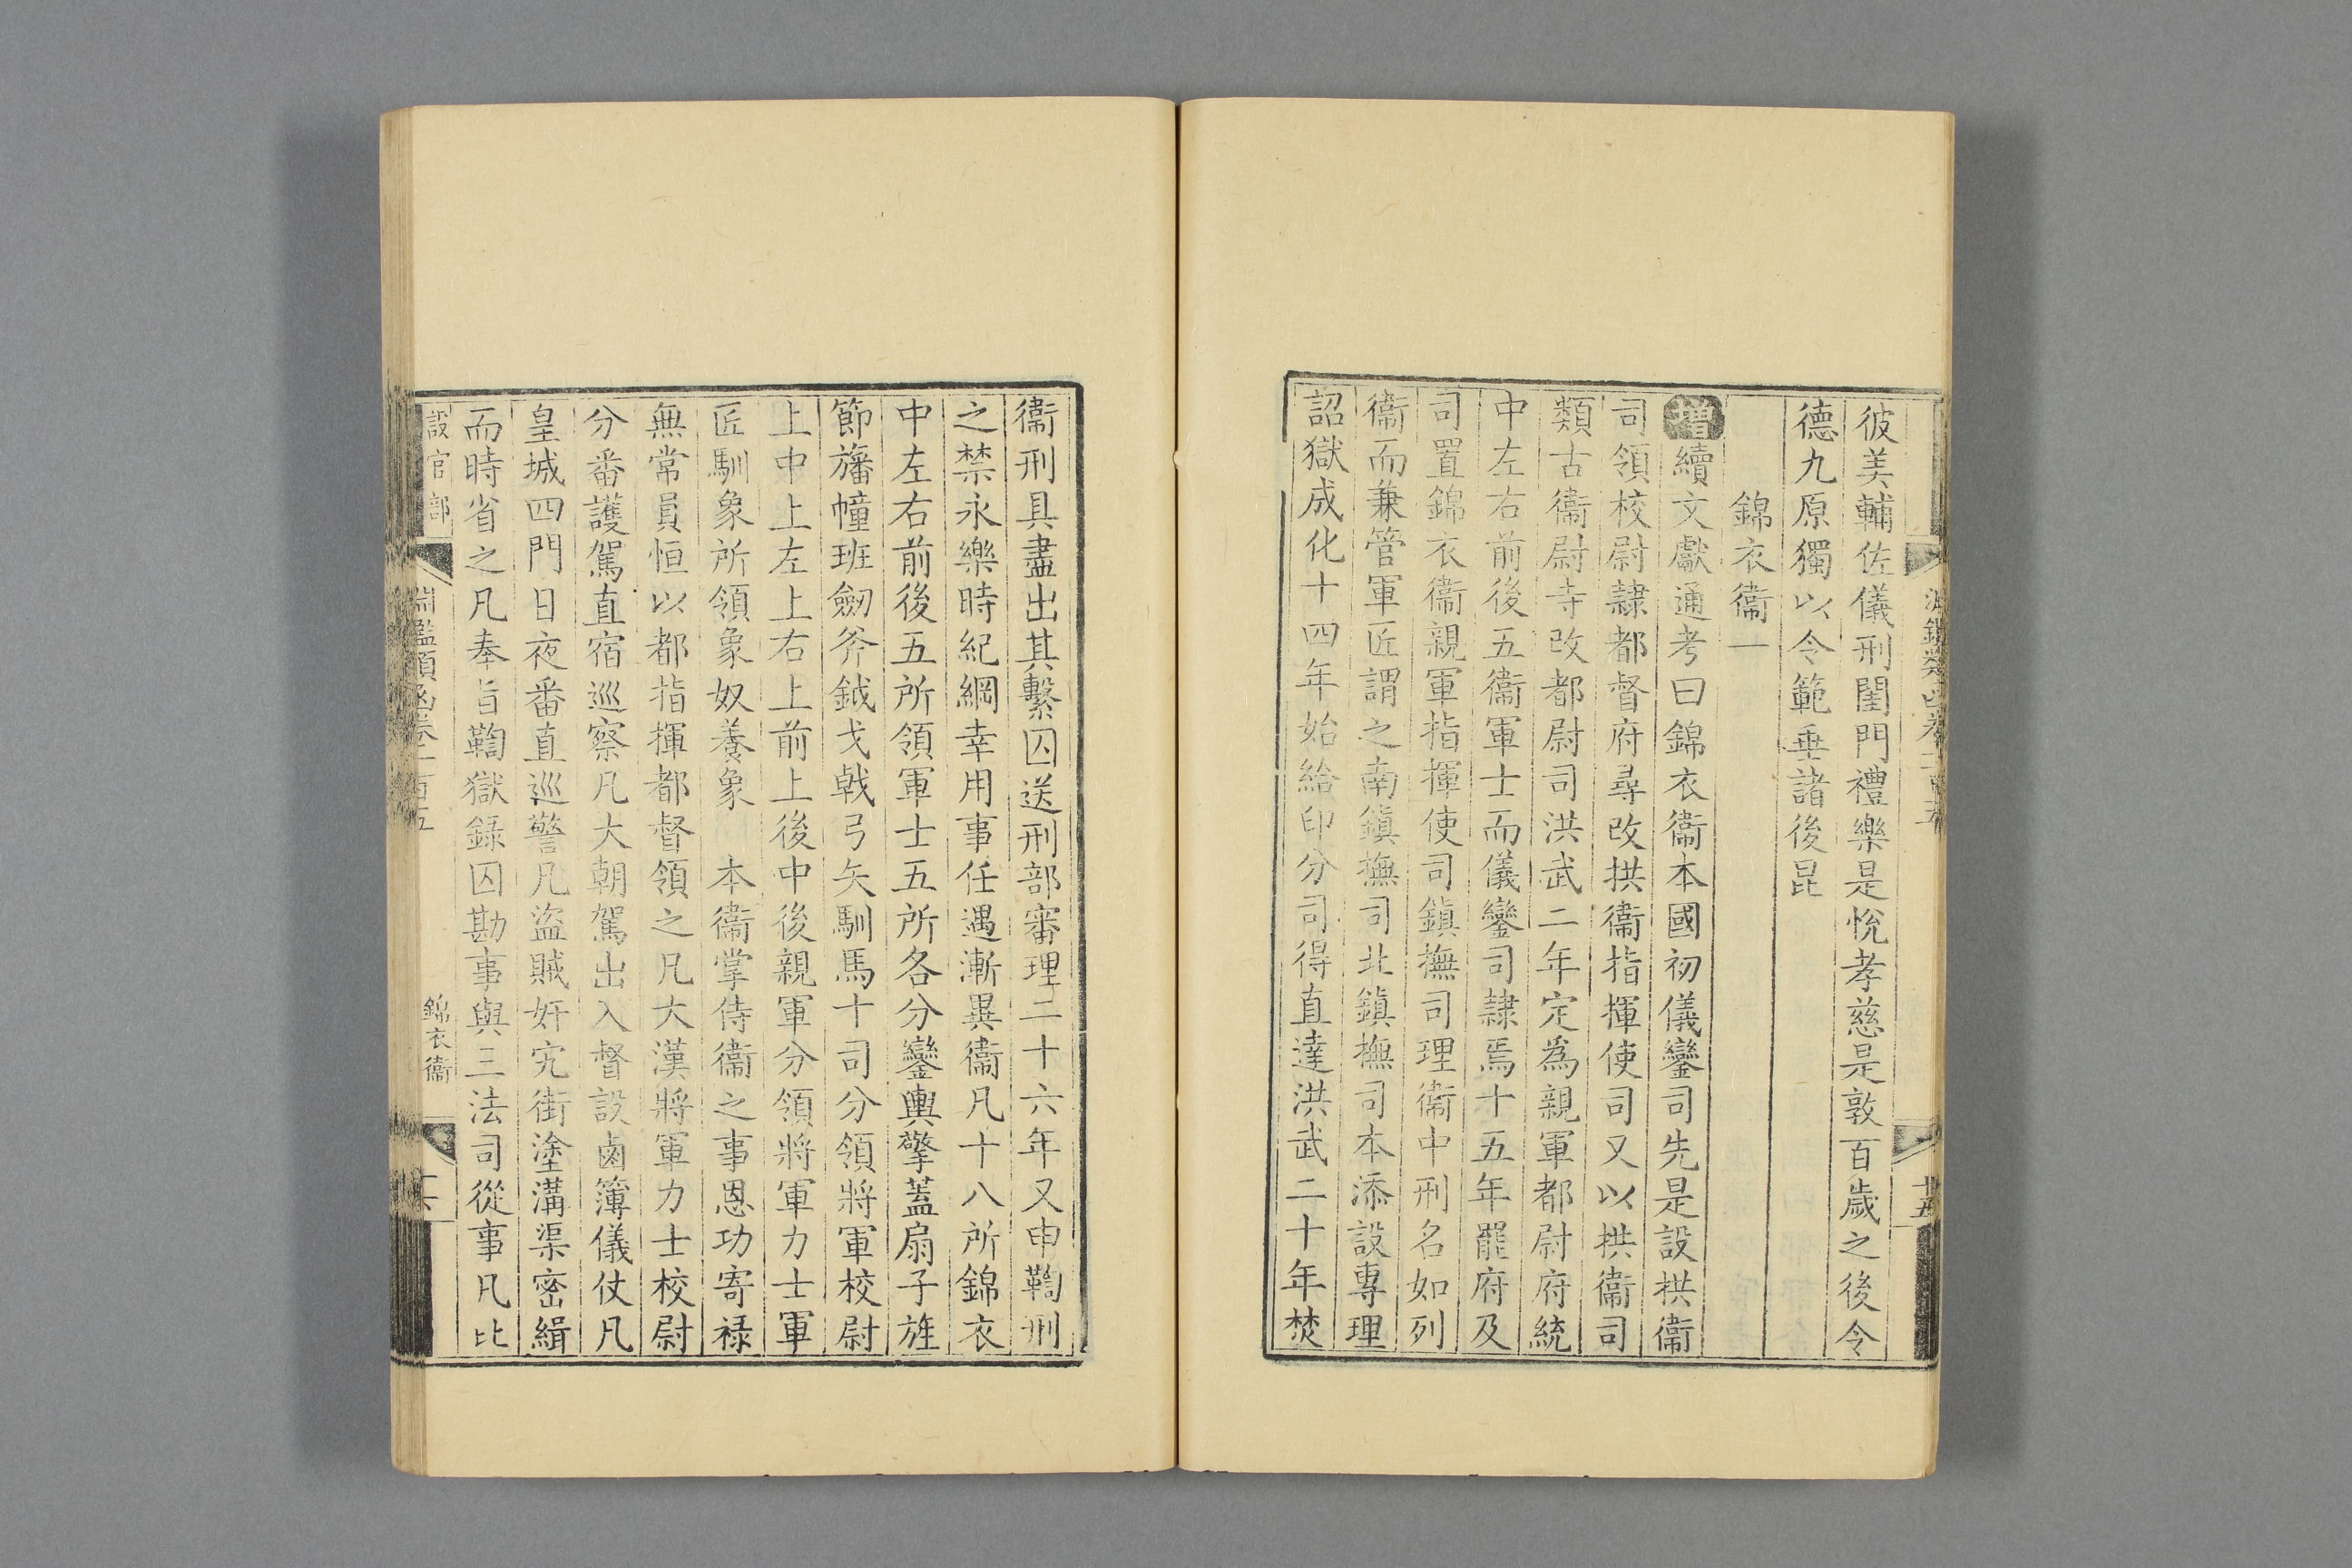 彼美輔佐儀刑閨門禮樂是悅孝慈是敦百歲之後令
德九原獨以令範垂諸後昆
錦衣衞一
增續文獻通考曰錦衣衞本國初儀鑾司先是設拱衞
司領校尉隷都督府尋改拱衞指揮使司又以拱衞司
類古衞尉寺改都尉司洪武二年定為親軍都尉府統
中左右前後五衞軍士而儀鑾司隷焉十五年罷府及
司置錦衣衞親軍指揮使司鎮撫司理衞中刑名如列
衞而兼管軍匠謂之南鎮撫司北鎮撫司本添設專理
詔獄成化十四年始給印分司得直達洪武二十年焚
衞刑具盡出其繫囚送刑部審理二十六年又申鞫刑
之禁永樂時紀綱幸用事任遇漸異衞凡十八所錦衣
中左右前後五所領軍士五所各分鑾輿擎蓋扇子旌
節旛幢班劒斧鉞戈戟弓矢馴馬十司分領將軍校尉
上中上左上右上前上後中後親軍分領將軍力士軍
匠馴象所領象奴養象　本衞掌侍衞之事恩功寄祿
無常員恒以都指揮都督領之凡大漢將軍力士校尉
分番護駕直宿巡察凡大朝駕出入督設鹵簿儀仗凡
皇城四門日夜番直巡警凡盜賊奸宄街塗溝渠密緝
而時省之凡奉旨鞫獄錄囚勘事與三法司從事凡比
設官部
淵鑑類函卷二百五
錦衣衞